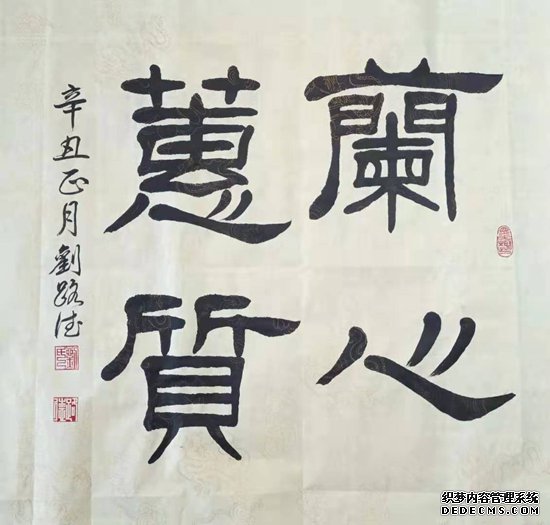 蘭心
蕙質
辛丑正月劉路德
织梦内容管理系统
DEDECMS.COM